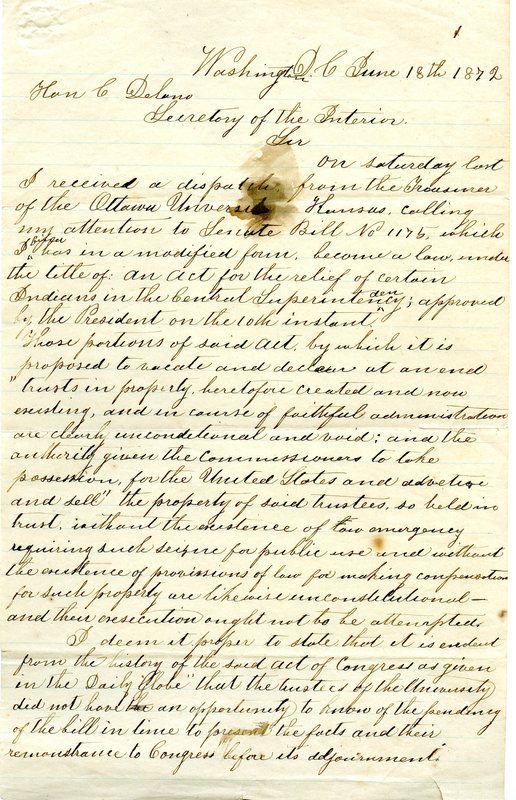 1
Washington D. C June 18th 1872
Hon C Delano
Secretary of the Interior.
Sir
On saturday last
I received a dispatch, from the Treasurer
of the Ottawa University Kansas, calling
my attention to Senate Bill No 1175, which
I
has in a modified form, become a law, under
the title of: an act for the relief of certain
Indians in the Central Superintendency; approved
by, the President on the 10th instant."
Those portions of said Act, by which it is
proposed to vacate and declair at an end
"trusts in property, heretofore created and now
existing, and in course of faithful administration
are clearly unconditional and void; and the
authority given the commissioners to take
possession, for the United States and advetise
and sell" the property of said trustees, so held in
trust, without the existence of law emergency
requiring such seizure for public use and without
the existence of provisions of law for making compensation
for such property are likewise unconstitutional—
and their execution ought not to be attempted.
I deem it proper to state that it is evident
from the history of the said act of Congress as given
in the Daily Globe" that the trustees of the University
did not have an opportunity to know of the pendency
of the bill in time to present the facts and their
remonstrance to Congress before its adjournment.